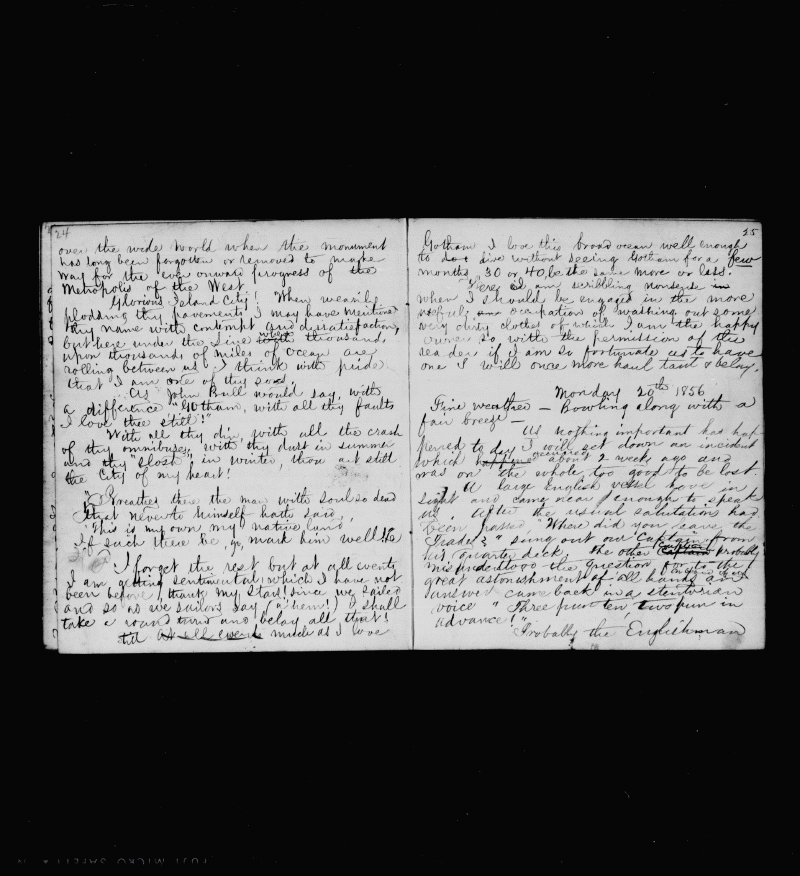 24
over the wide world when the monument
has long been forgotten or removed to make
way for the ever onward progress of the
Metropolis of the West.
Glorious Island City! When wearily
plodding thy pavements I may have mentioned
thy name with contempt and dissatisfaction,
but here under the Line where thousands
upon thousands of miles of ocean are
rolling between us I think with pride
that I am one of thy sons.
As John Bull would say, with
a difference "Gotham, with all thy faults
I love thee still!"
With all thy din, with all the crash
of thy omnibuses, with thy dust in summer
and thy "slosh" in winter thou art still
the City of my heart!
"Breathes there the man with soul so dead
That never to himself hath said,
This is my own my native land,
If such there be, go, mark him well &c
I forget the rest but at all events
I am getting sentimental which I have not
been before, thank my Stars! since we sailed
and so as we sailors say, (ahem!) I shall
take a round turn and belay all that!
much as I love
25
Gotham I love this broad ocean well enough
to live without seeing Gotham for a few
months, 30 or 40, be the same more or less.
Here I am scribbling nonsense
when I should be engaged in the more
useful occupation of washing out some
very dirty clothes of which I am the happy
owner so with the permission of the
reader if I am so fortunate as to have
one I will once more haul taut & belay.
Monday 20th 1856
Fine weather — Bowling along with a
fair breeze —
As nothing important has hap
pened to day I will set down an incident
which occurred about 2 weeks ago and
was on the whole too good to be lost.
A large English vessel hove in
sight and came near enough to speak
us. After the usual salutations had
been passed, "Where did you leave the
Trades?" sung out our Captain from
his quarter deck, the other Captain probably
misunderstood the question for to the
great astonishment of all hands an
answer came back in a stentorian
voice "Three pun ten, two pun in
advance!"
Probably the Englishman